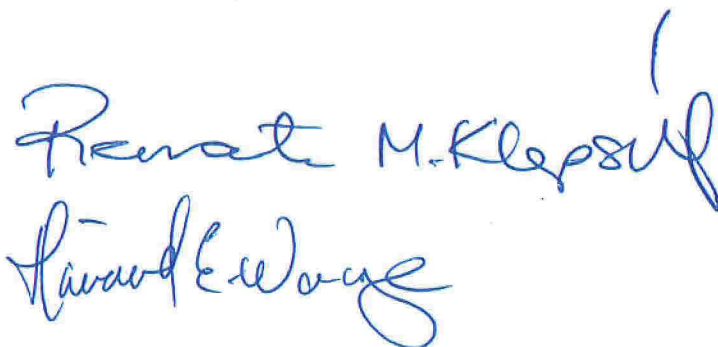 Renate M. Klepsvik
Håvard E. Wang